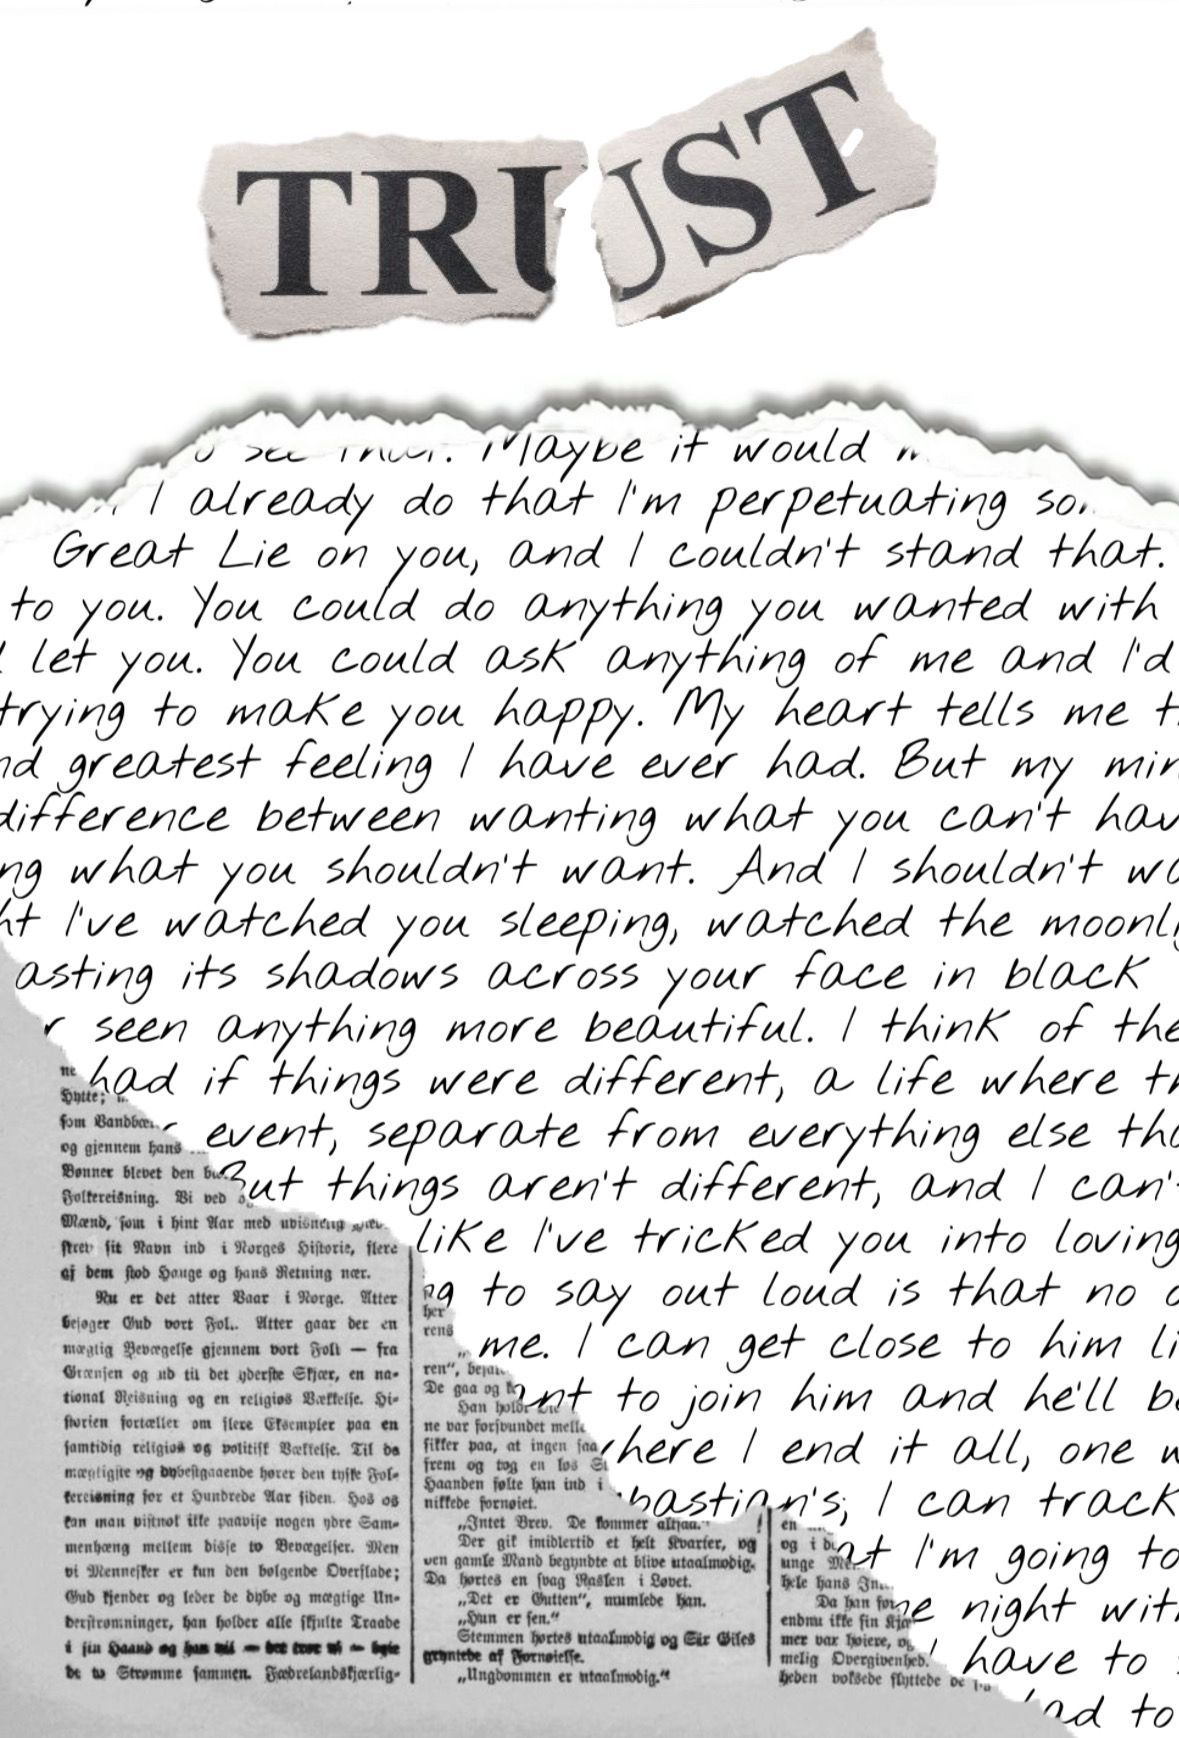 TRUST
Maybe it would
I already do that I'm perpetuating
Great Lie on you, and I couldn't stand that.
to you. You could do anything you wanted with
let you. You could ask anything of me and I'd
trying to make you happy. My heart tells me
greatest feeling I have ever had. But my
difference between wanting what you can't
what you shouldn't want. And I shouldn't
I've watched you sleeping, watched the
asting its shadows across your face in black
seen anything more beautiful. I think of the
had if things were different, a life where
event, separate from everything else
But things aren't different, and I can't
like I've tricked you into loving
to say out loud is that no
me. I can get close to him
to join him and he'll
where I end it all, one
bastian's, I can track
I'm going to
night with
have to
to
Hytte;
som
og gjennem hans
Bønner blevet den
Folkereisning. Vi ved
Mænd, som i hint Aar med
sit Navn ind i Norges Historie, flere
af dem stod Hauge og hans Retning nær.
Nu er det atter Vaar i Norge. Atter
besøger Gud vort Folk. Atter gaar der en
mægtig Bevægelse gjennem vort Folk — fra
Grænsen og ud til det yderste Skjær, en na-
tional Reisning og en religiøs Vækkelse. Hi-
storien fortæller om flere Eksempler paa en
samtidig religiøs og politisk Vækkelse. Til de
mægtigste og dybestgaaende hører den tyske Fol-
kereisning for et Hundrede Aar siden. Hos os
kan man vistnok ikke paavise nogen ydre Sam-
menhæng mellem disse to Bevægelser. Men
vi Mennesker er kun den bølgende Overflade;
Gud kjender og leder de dybe og mægtige Un-
derstrømninger, han holder alle skjulte Traade
i sin Haand og han vil — det tror vi —
de to Strømme sammen. Fædrelandskjærlig-
her
rens
De gaa og
Han holdt
ne var forsvundet
sikker paa, at ingen saa
frem og tog en løs
Haanden følte han ind i
nikkede fornøiet.
„Intet Brev. De kommer altsaa."
Der gik imidlertid et helt Kvarter, og
den gamle Mand begyndte at blive utaalmodig.
Da hørtes en svag Raslen i Løvet.
„Det er Gutten", mumlede han.
„Hun er sen."
Stemmen hørtes utaalmodig og Sir Giles
gryntede af Fornøielse.
„Ungdommen er utaalmodig."
en
og i
unge
hele hans
Da han
endnu ikke sin
mer var høiere,
melig Overgivenhed.
heden voksede flyttede de